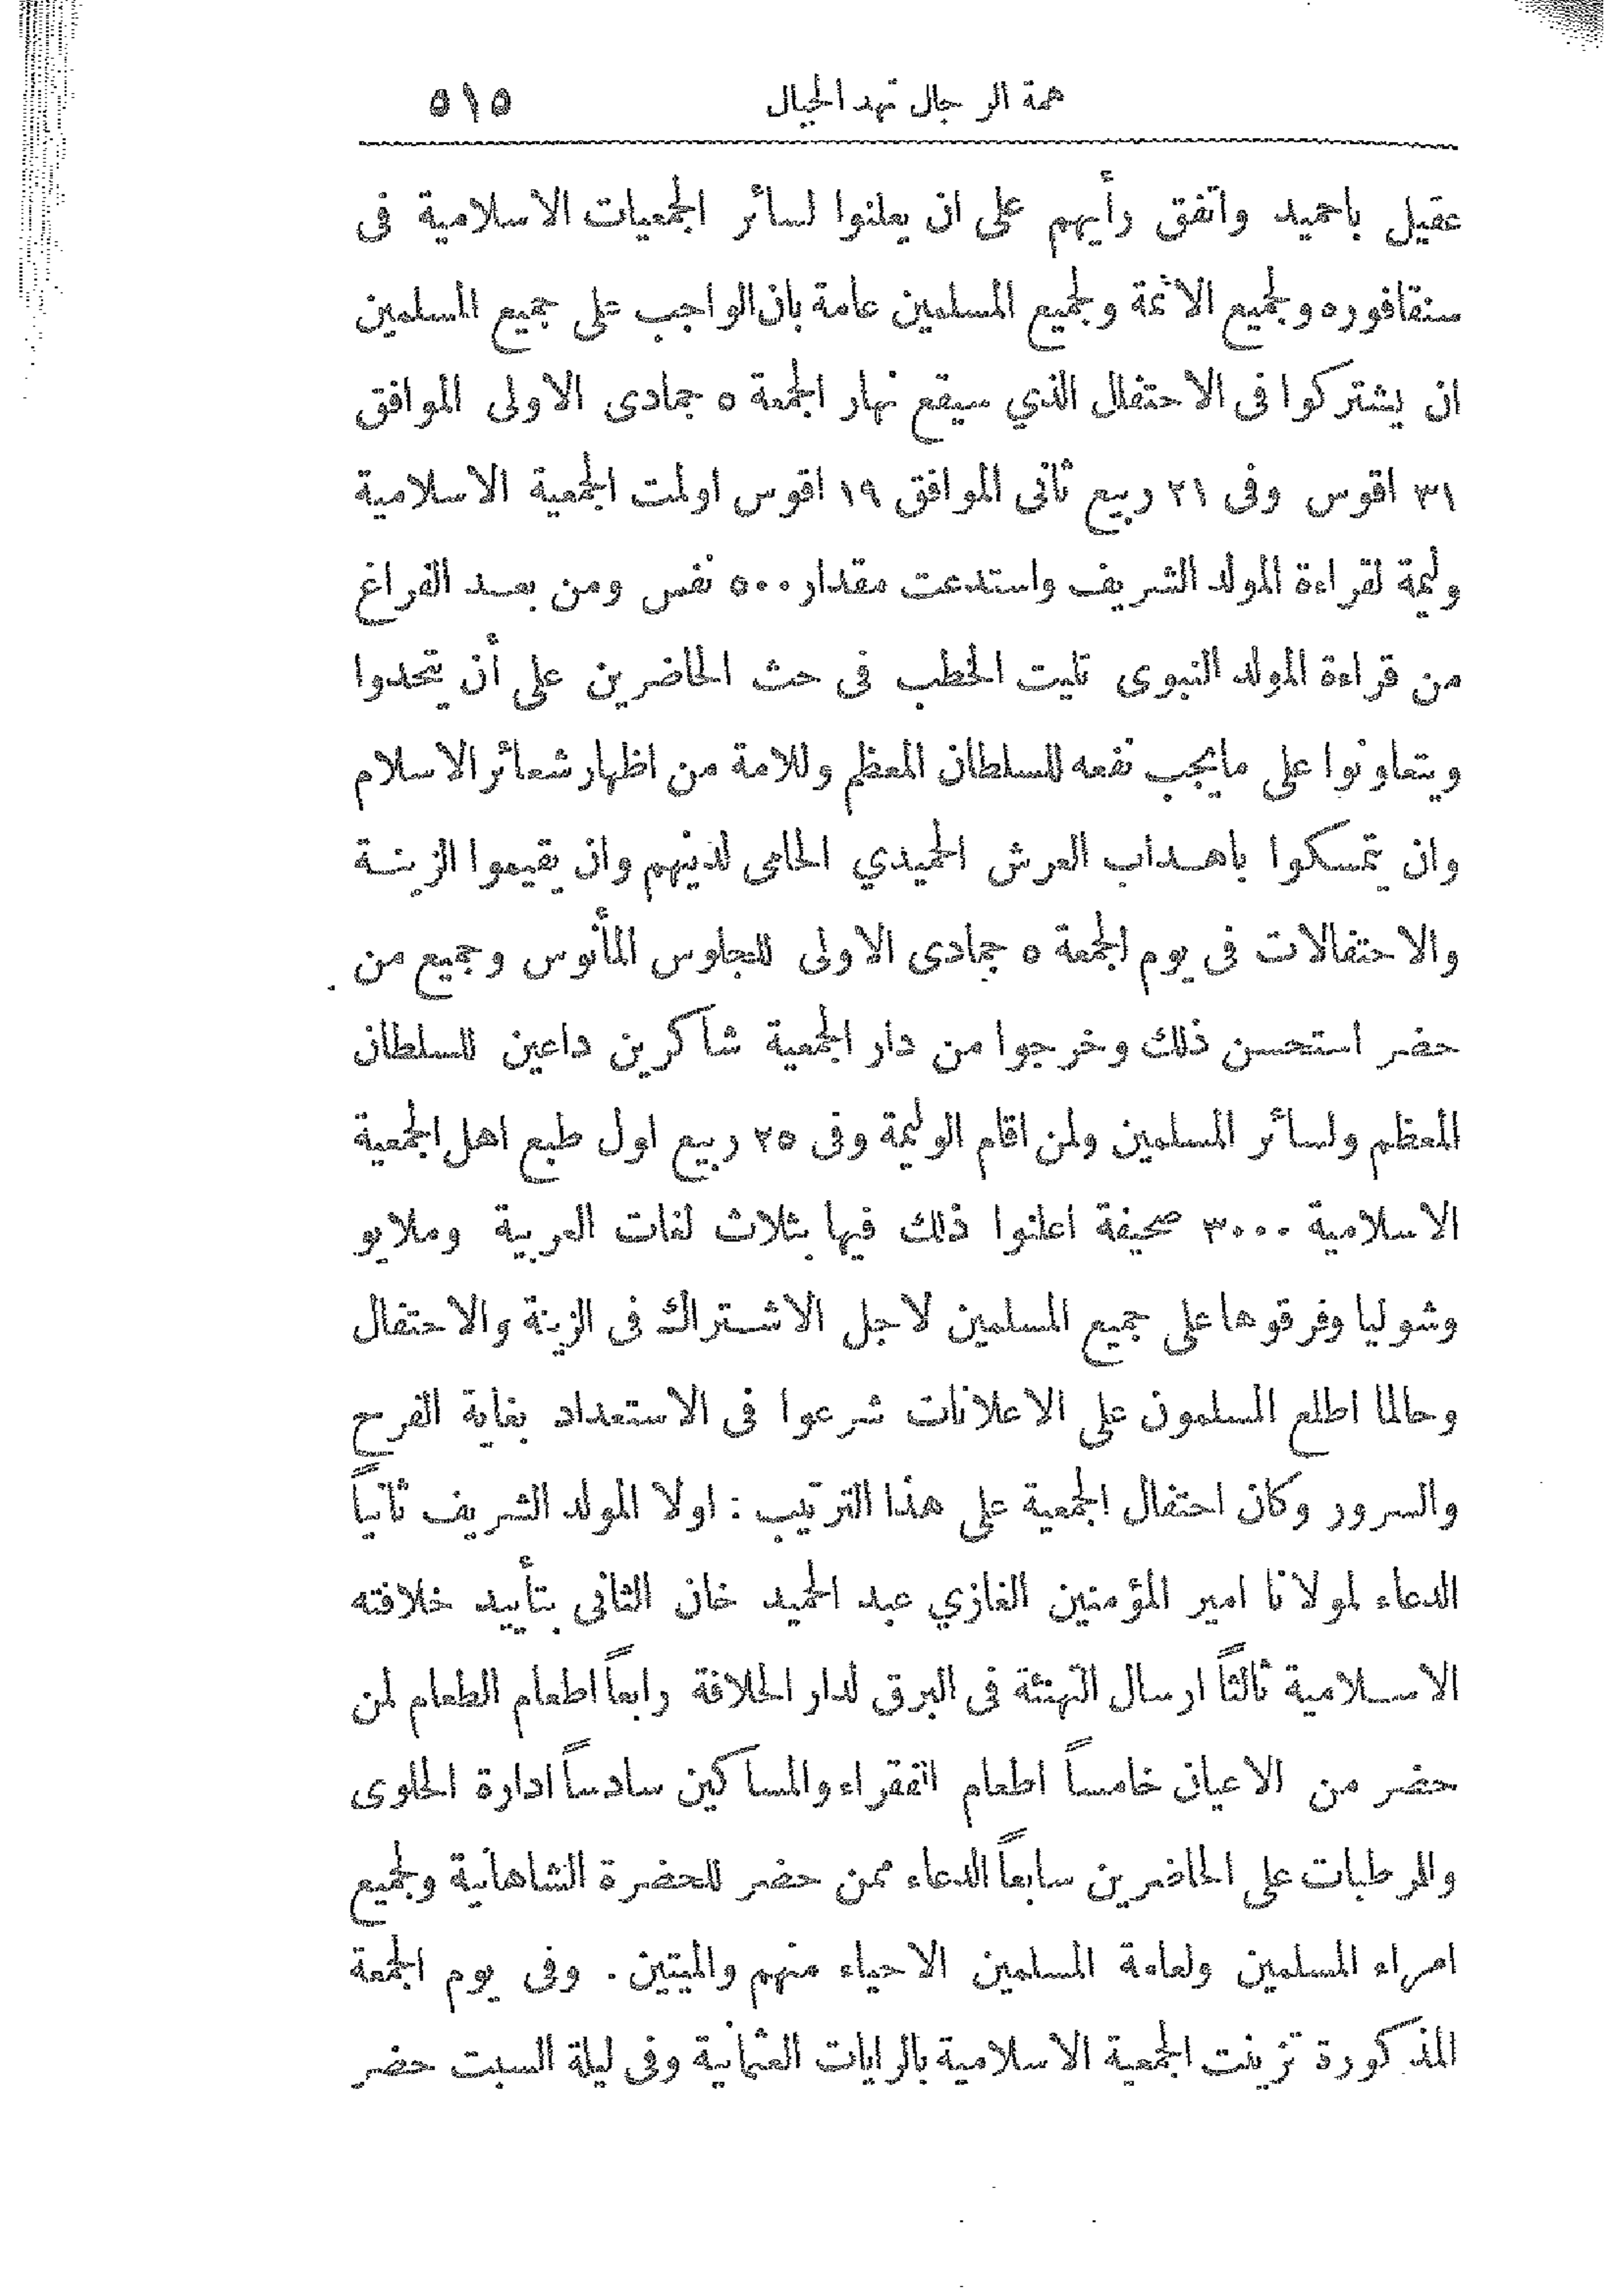 همة الرجال تهد الجبال ٥١٥
عقيل باحميد واتفق رأيهم على ان يعلنوا لسائر الجمعيات الاسلامية فى
سنقافوره ولجميع الائمة ولجميع المسلمين عامة بان الواجب على جميع المسلمين
ان يشتركوا فى الاحتفال الذي سيقع نهار الجمعة ٥ جمادى الاولى الموافق
٣١ اقوس وفى ٢١ ربيع ثانى الموافق ١٩ اقوس اولمت الجمعية الاسلامية
وليمة لقراءة المولد الشريف واستدعت مقدار ٥٠٠ نفس ومن بعد الفراغ
من قراءة المولد النبوى تليت الخطب فى حث الحاضرين على أن يتحدوا
ويتعاونوا على مايجب نفعه للسلطان المعظم وللامة من اظهار شعائر الاسلام
وان يتمسكوا باهداب العرش الحميدي الحامى لدينهم وان يقيموا الزينة
والاحتفالات فى يوم الجمعة ٥ جمادى الاولى للجلوس المأنوس وجميع من
حضر استحسن ذلك وخرجوا من دار الجمعية شاكرين داعين للسلطان
المعظم ولسائر المسلمين ولمن اقام الوليمة وفى ٢٥ ربيع اول طبع اهل الجمعية
الاسلامية ٣٠٠٠ صحيفة اعلنوا ذلك فيها بثلاث لغات العربية وملايو
وشوليا وفرقوها على جميع المسلمين لاجل الاشتراك فى الزينة والاحتفال
وحالما اطلع المسلمون على الاعلانات شرعوا فى الاستعداد بغاية الفرح
والسرور وكان احتفال الجمعية على هذا الترتيب : اولا المولد الشريف ثانياً
الدعاء لمولانا امير المؤمنين الغازي عبد الحميد خان الثانى بتأييد خلافته
الاسلامية ثالثاً ارسال التهنئة فى البرق لدار الخلافة رابعاً اطعام الطعام لمن
حضر من الاعيان خامساً اطعام الفقراء والمساكين سادساً ادارة الحلوى
والمرطبات على الحاضرين سابعاً الدعاء ممن حضر للحضرة الشاهانية ولجميع
امراء المسلمين ولعامة المسلمين الاحياء منهم والميتين . وفى يوم الجمعة
المذكورة تزينت الجمعية الاسلامية بالرايات العثمانية وفى ليلة السبت حضر